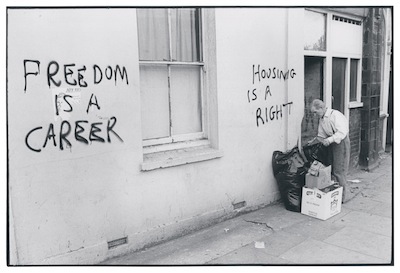 FREEDOM
IS A
CAREER
HOUSING
IS A
RIGHT